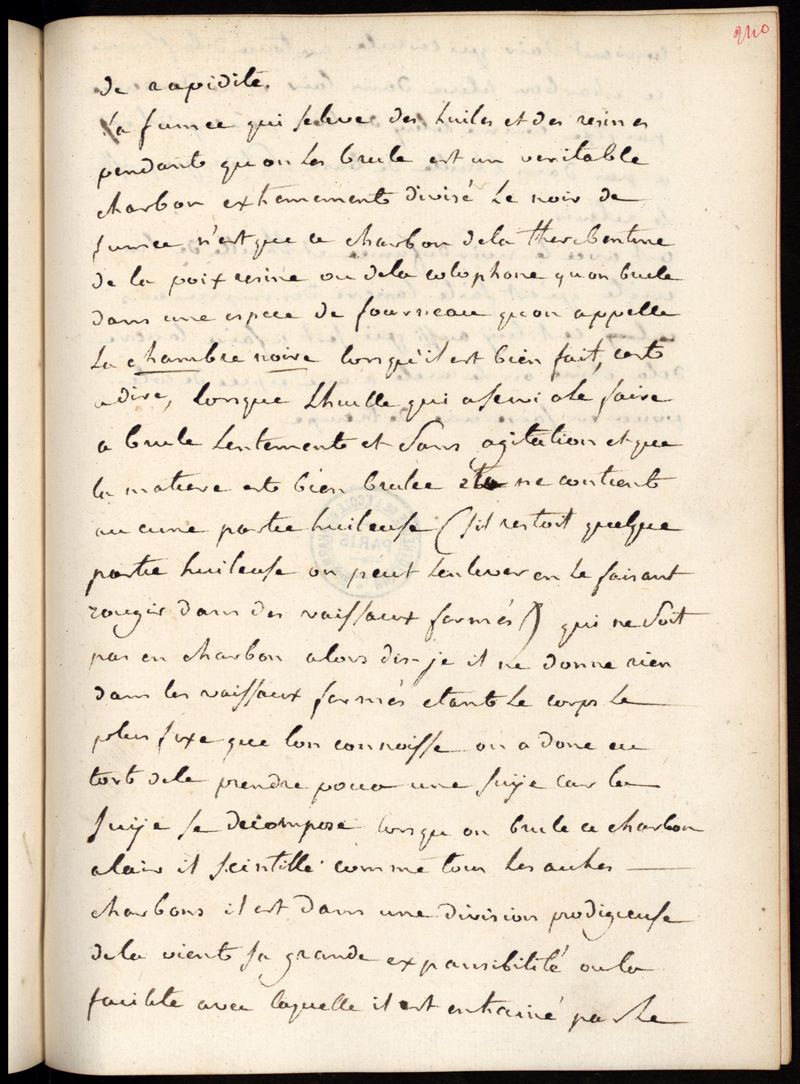 240
de rapidité.
la fumée qui seleve des huiles et des resines
pendante quon les brule est un veritable
charbon extremement divisé le noir de
fumée n'est que ce charbon dela therebentine
de la poix resine ou dela colophone quon brule
dans une espece de fourneau quon appelle
la chambre noire lorsqu'il est bien fait, cest
adire, lorsque Lhuille qui a servi a le faire
a brulé Lentement et sans agitation et que
la matiere est bien brulée ne contient
aucune partie huileuse (s'il restoit quelque
partie huileuse on peut Lenlever en le faisant
rougir dans des vaissaux fermés) qui ne soit
pas en charbon alors dis-je il ne donne rien
dans les vaissaux fermés etant le corps le
plus fixe que lon connoisse on a donc eu
tort dele prendre pour une suije car la
suije se decompose lorsqu on brule ce charbon
alair il scintille comme tous les autres
charbons il est dans une division prodigieuse
dela vient sa grande expansibilité ou la
facilité avec laquelle il est entrainé par le
PARIS